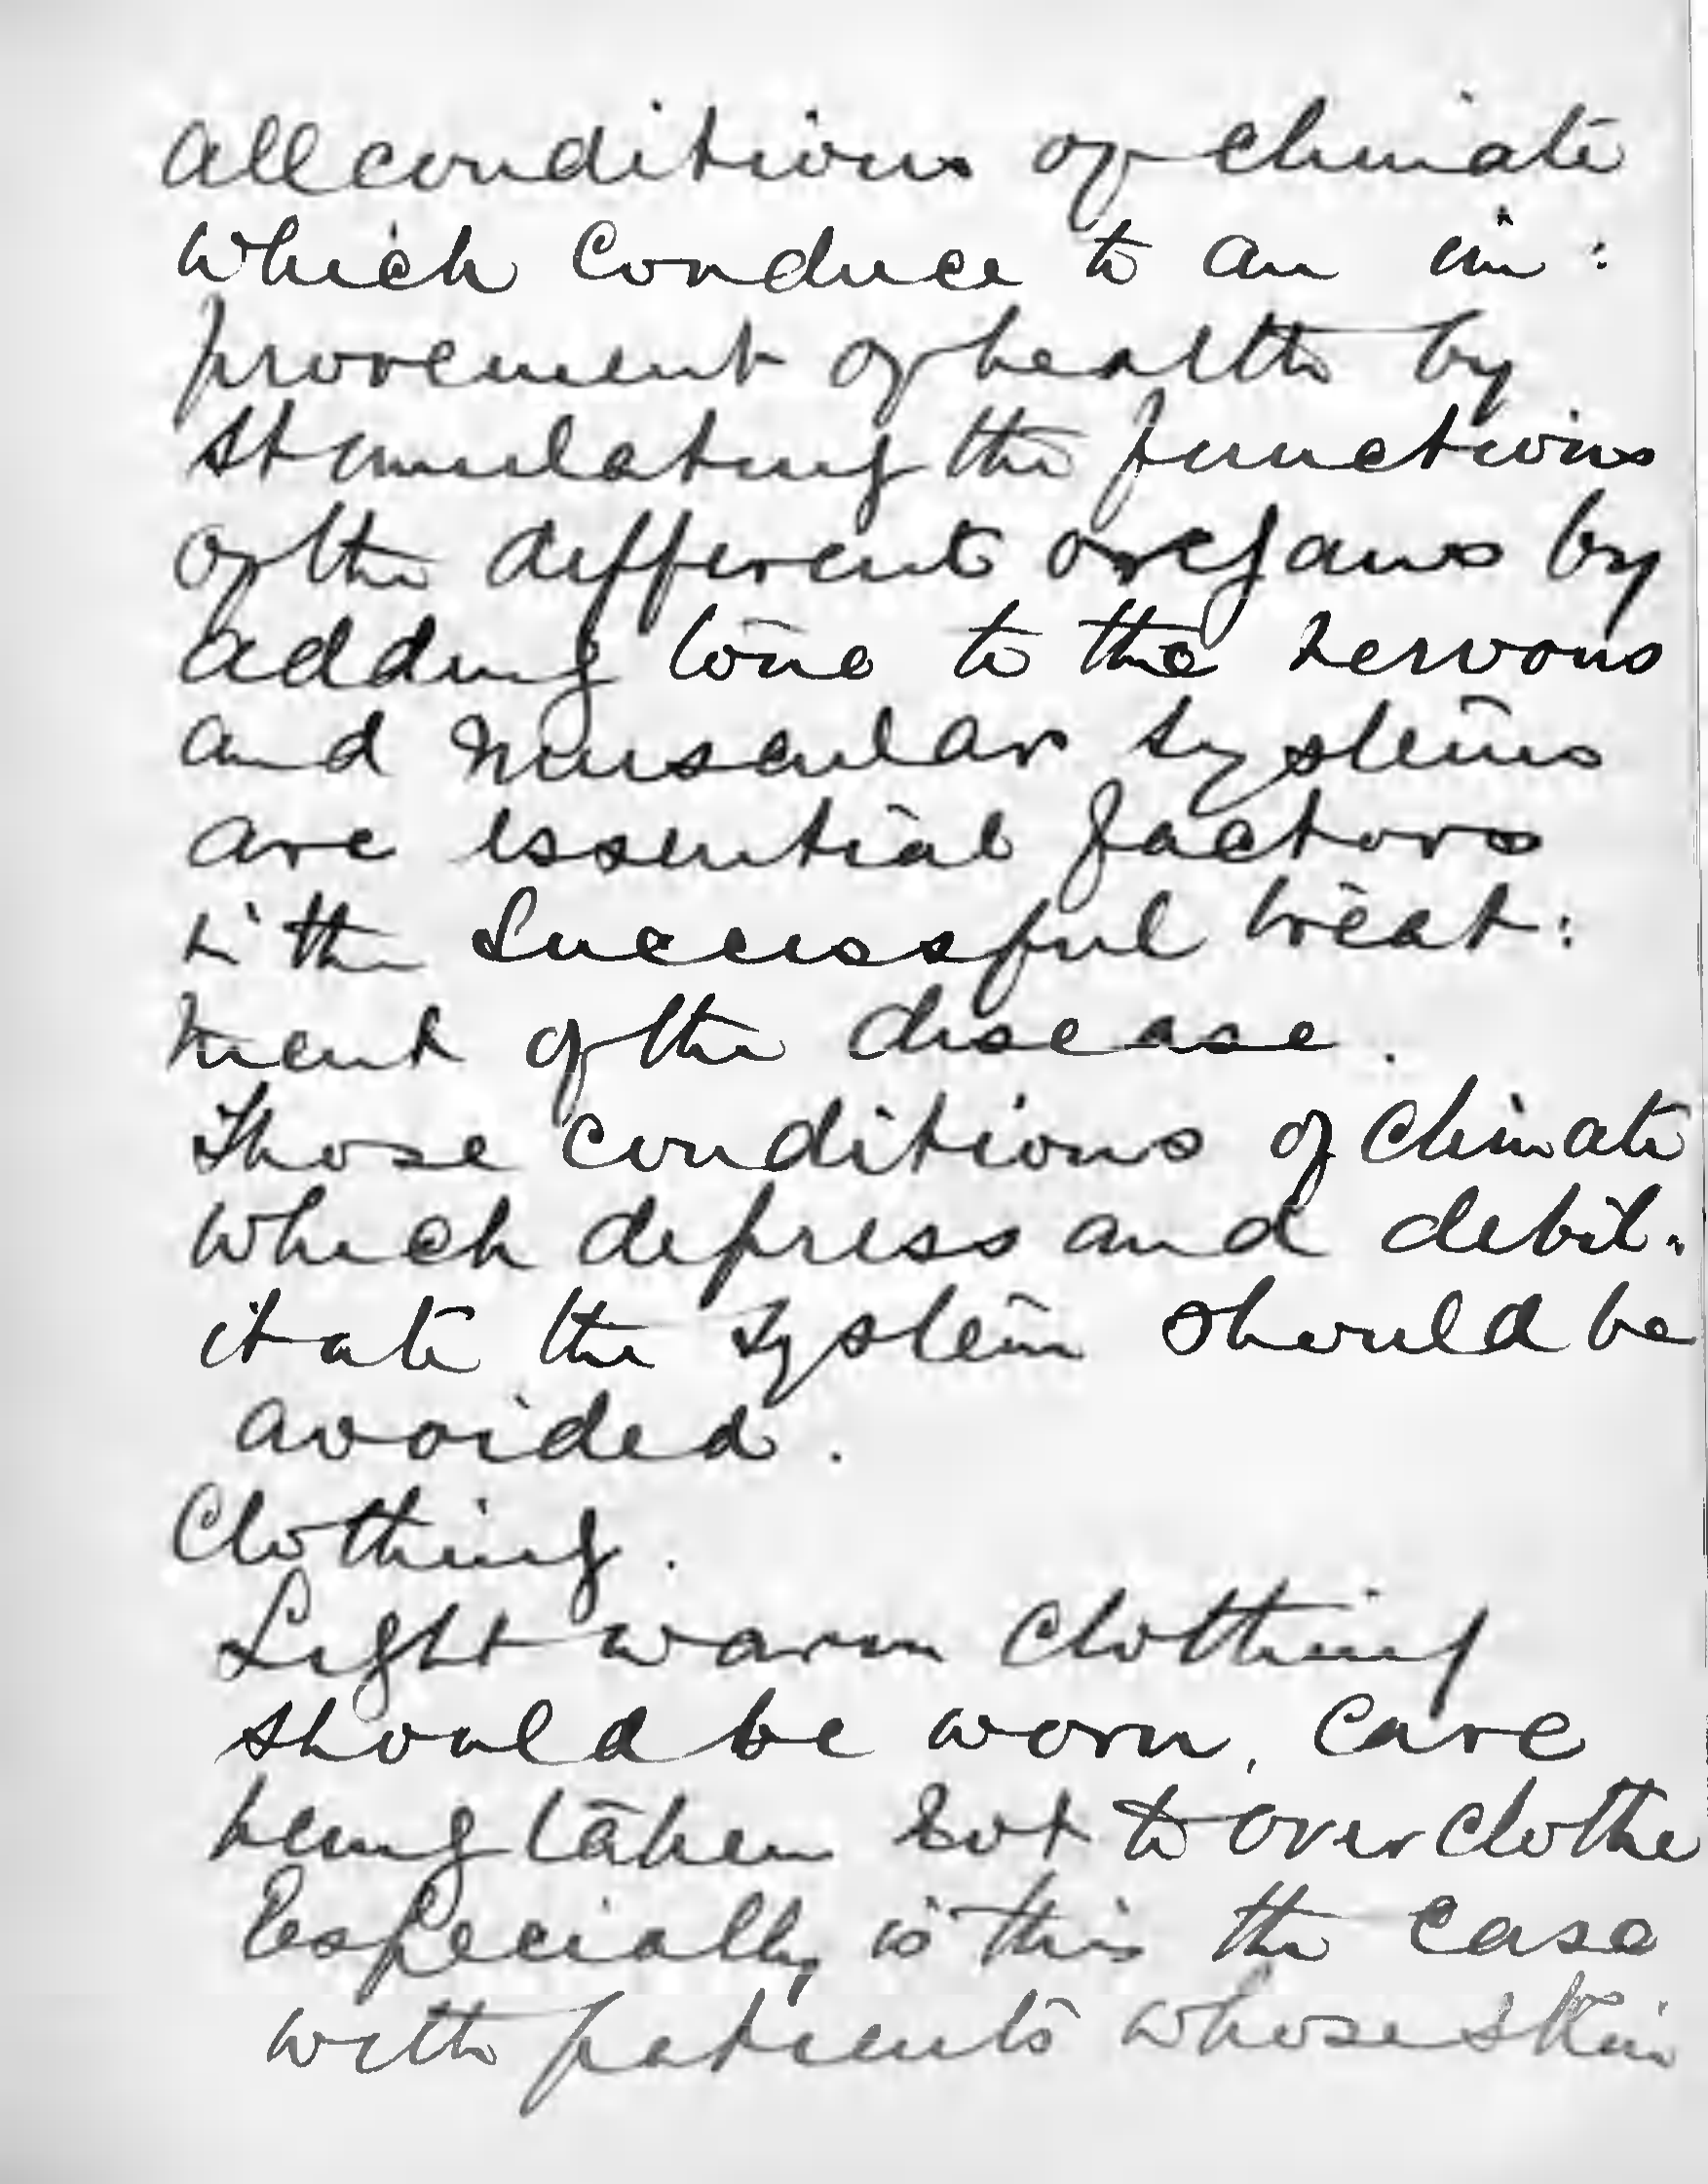 All conditions of climate
which conduce to an im:
provement of health by
stimulating the functions
of the different organs by
adding tone to the nervous
and muscular systems
are essential factors
in the successful treat:
ment of the disease.
Those conditions of climate
which depress and debil.
itate the system should be
avoided.
Clothing.
Light warm clothing
should be worn, care
being taken not to over clothe
Especially is this the case
with patients whose skin